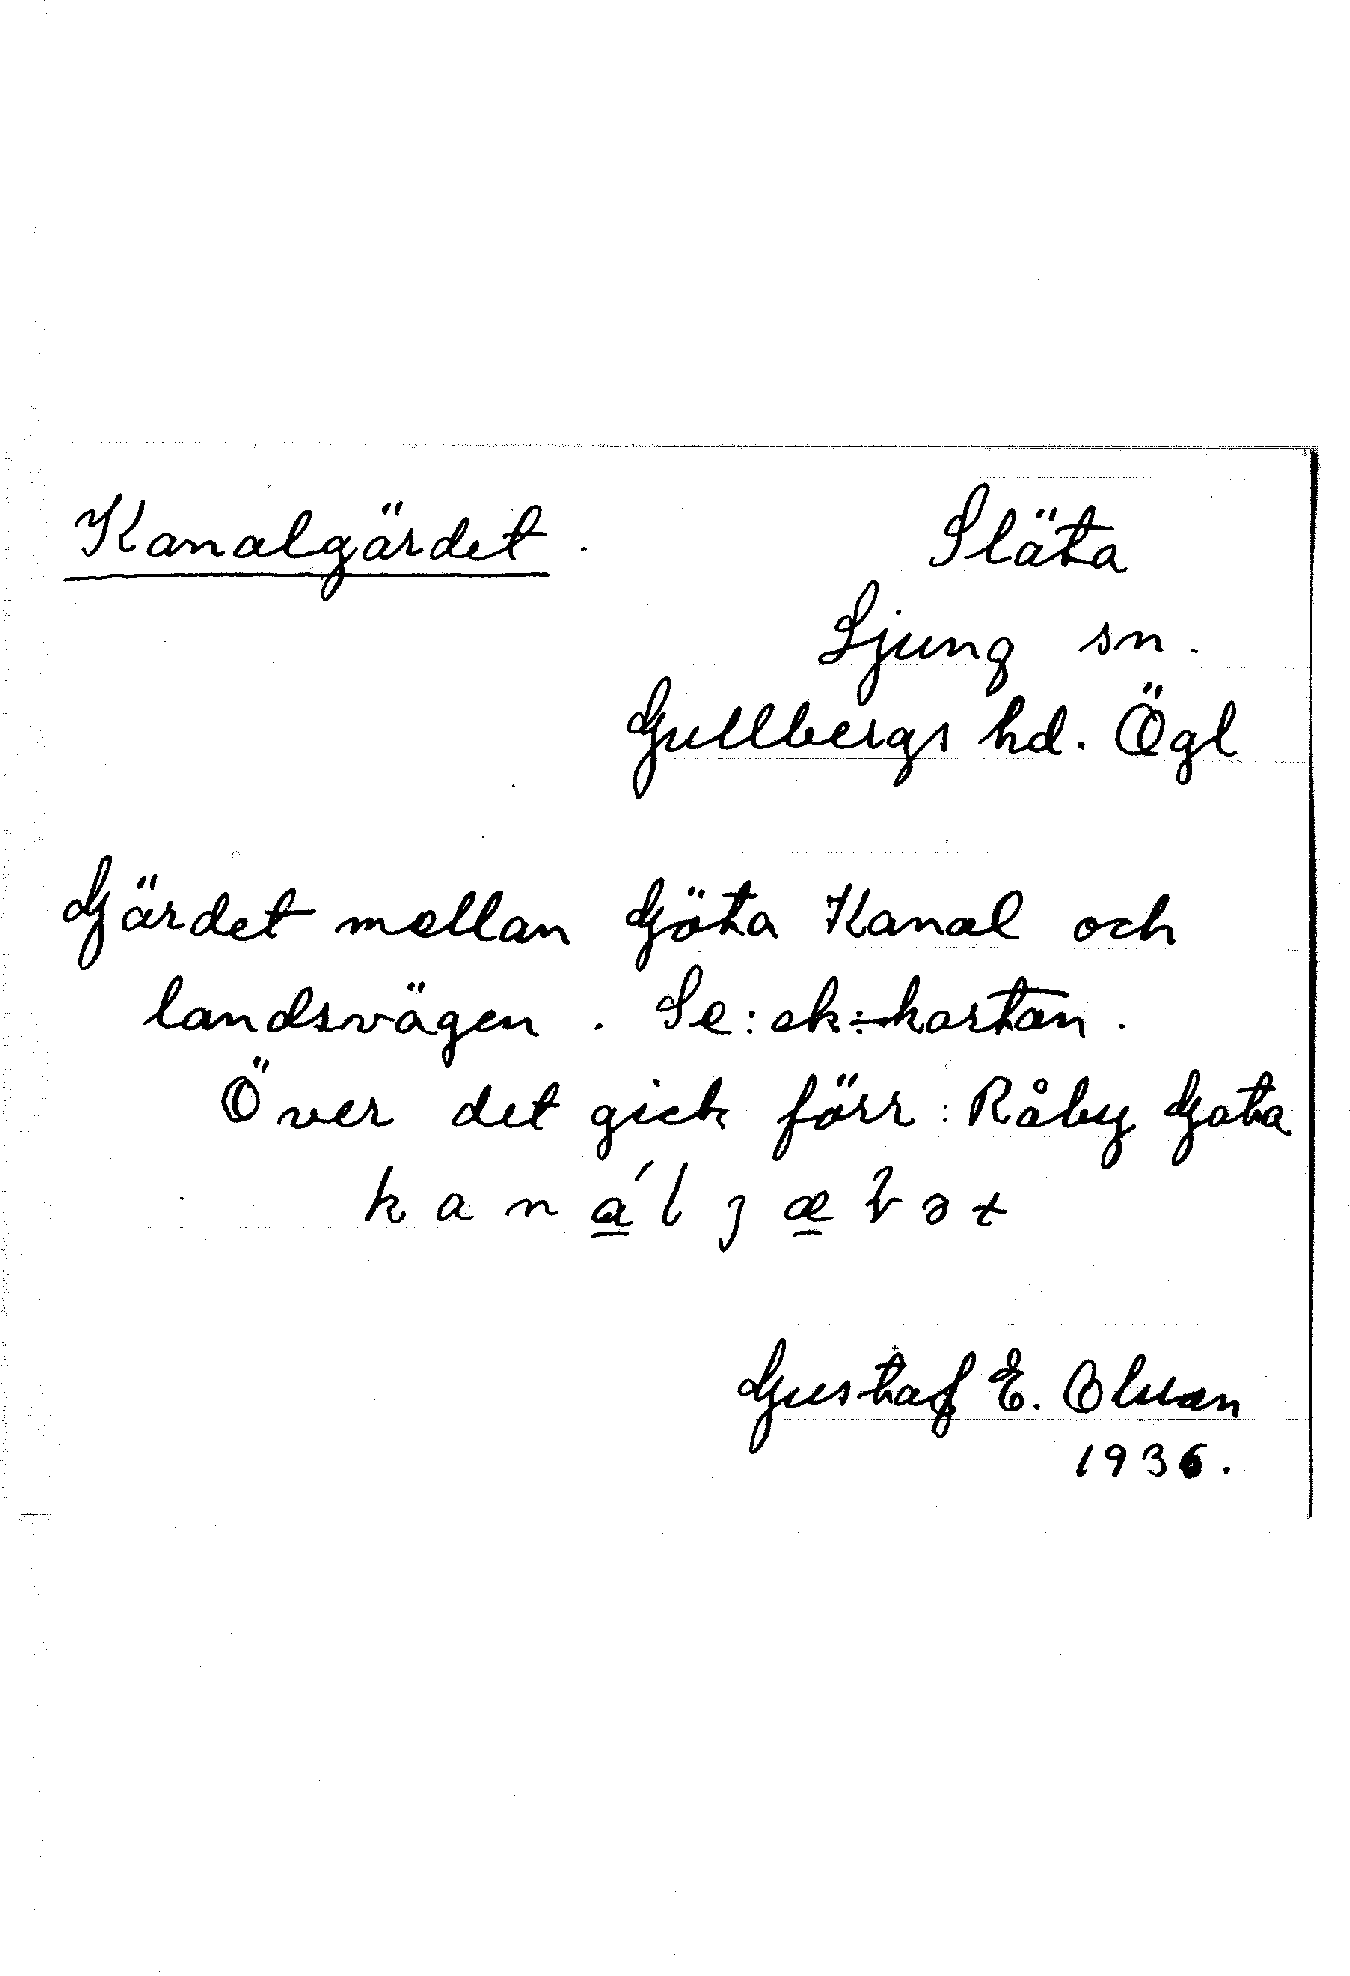 Kanalgärdet.
Släta
Ljung sn.
Gullbergs hd. Ögl
Gärdet mellan Göta Kanal och
landsvägen. Se: ek:-kartan.
Över det gick förr: Råby Gata
kaná̲lȷæ̲ɽət
Gustaf E. Olsson
1936.